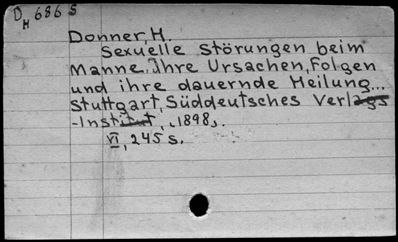 D H 686 S
Donner, H.
Sexuelle Störungen beim
Manne. Ihre Ursachen, Folgen
und ihre dauernde Heilung...
Stuttgart, Süddeutsches Verlags
-Institut, ‹1898›.
VI, 245 S.